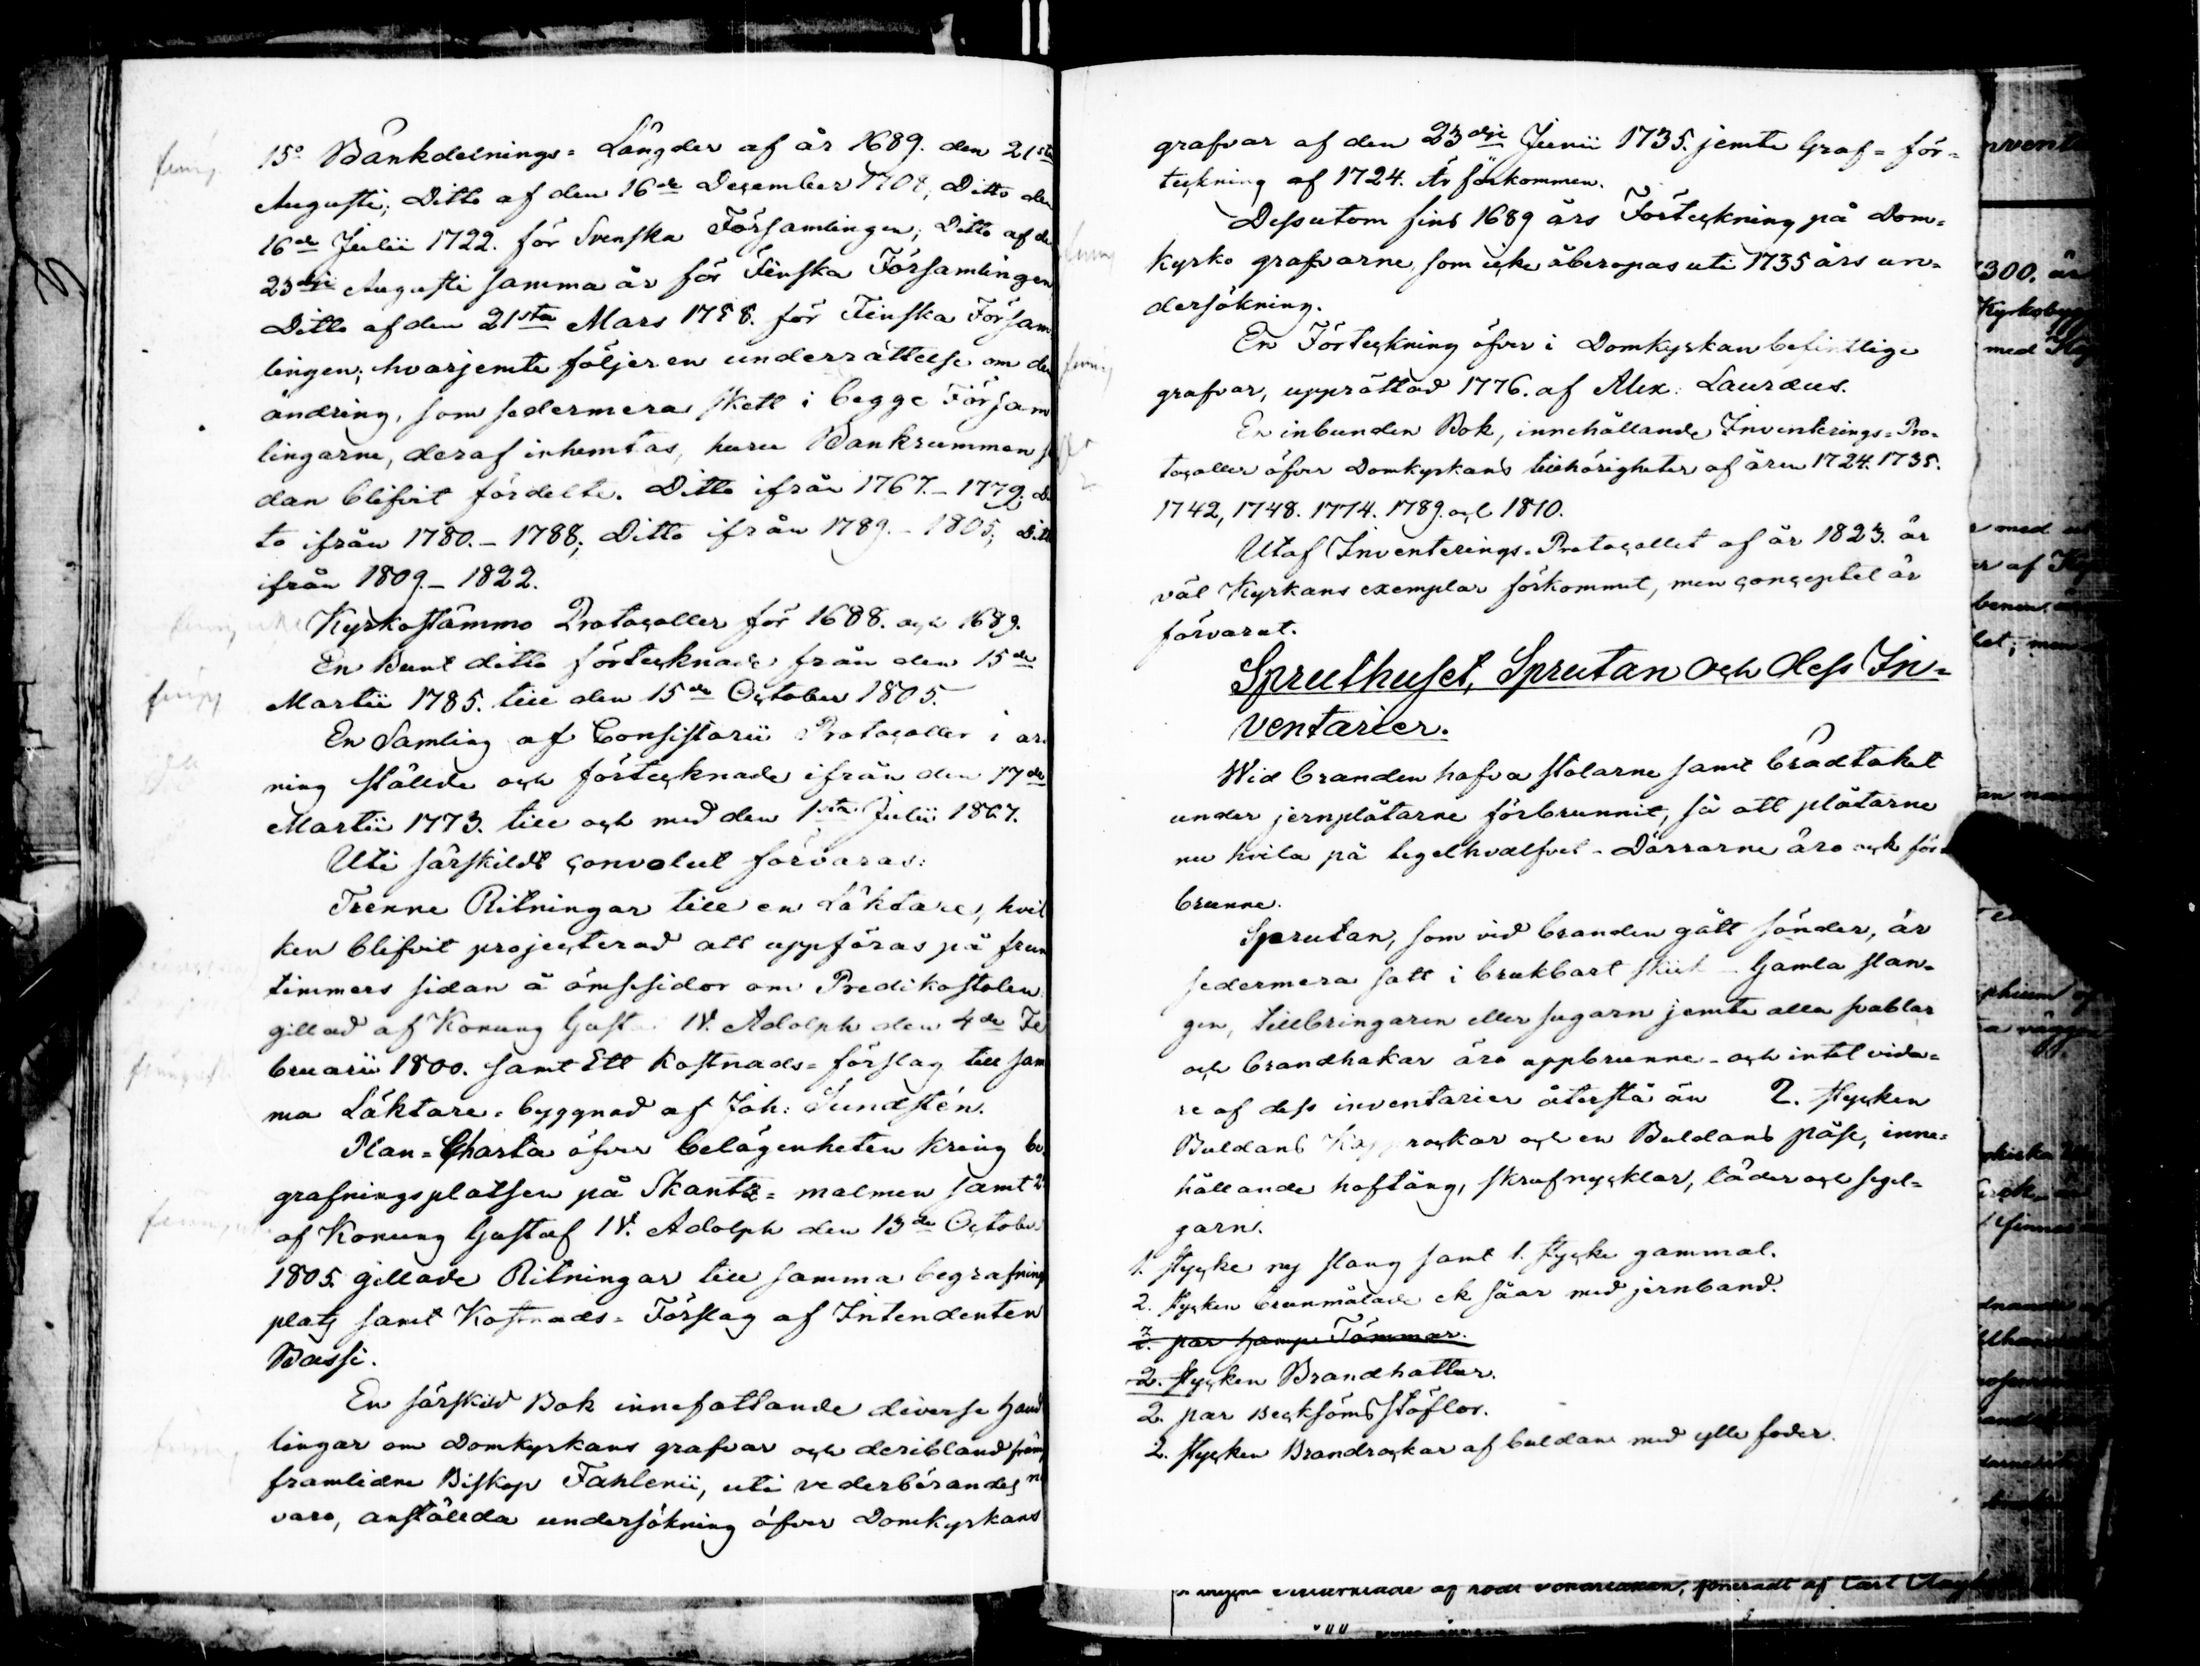 15o Bänkdelnings= Längder af år 1689. den 21sta
Augusti; Ditto af den 16de December 1708, Ditto den
16de Julii 1722. för Svenska Församlingen; Ditto af de
23dje Augusti samma år för Finska Församlingen
Ditto af den 21sta Mars 1758. för Finska Försam
lingen; hvarjemte följer en underrättelse om den
ändring, som sedermera skett i begge Försam
lingarne, deraf inhemtas, huru Bänkrummen s
dan blifvit fördelte. Ditto ifrån 1767.-1779. Di
to ifrån 1780.-1788; Ditto ifrån 1789.-1805; Ditt
ifrån 1809.-1822.
Kyrkostämmo Protocoller för 1688. och 1689.
En Bunt ditto förtecknade från den 15de
Martii 1785. till den 15de October 1805.
En Samling af Consistorii Protocoller i ord
ning stälde och förtecknade ifrån den 17de
Martii 1773. till och med den 1sta Julii 1807.
Uti särskildt convolut förvaras:
Trenne Ritningar till en Läktare, hvil
ken blifvit projecterad att uppföras på frun
timmers sidan å ömse sidor om Predikostolen
gillad af Konung Gustaf IV. Adolph den 4de Fe
bruarii 1800. samt Ett Kostnads= förslag till sam
ma Läktare= byggnad af Joh: Sundstén.
Plan=Charta öfver belägenheten kring be
grafningsplatsen på Skantz= malmen samt 2
af Konung Gustaf IV. Adolph den 13de October
1805. gillade Ritningar till samma begrafnings
plats samt Kostnads= Förslag af Intendenten
Bassi.
En särskild Bok innefattande diverse Hand
lingar om Domkyrkans grafvar och deribland
framlidne Biskop Fahlenii, uti vederbörandes
varo, anstälda undersökning öfver Domkyrkans
grafvar af den 23dje Junii 1735. jemte Graf= för=
teckning af 1724. Är förkommen.
Dessutom fins 1689 års Förteckning på Dom=
kyrko grafvarne, som icke åberopas uti 1735 års un=
dersökning.
En Förteckning öfver i Domkyrkan befintlige
grafvar, upprättad 1776. af Alex: Lauræus.
En inbunden Bok, innehållande Inventerings= Pro=
tocoller öfver Domkyrkans tillhörigheter af åren 1724. 1735.
1742, 1748. 1774. 1789. och 1810.
Utaf Inventerings= Protocollet af år 1823. är
väl Kyrkans exemplar förkommit, men conceptet är
förvarat.
Spruthuset, Sprutan och dess In=
ventarier.
Wid branden hafva stolarne samt brädtaket
under jernplåtarne förbrunnit, så att plåtarne
nu hvila på tegelhvalfvet - Dörrarne äro ock för=
brunne.
Sprutan, som vid branden gått sönder, är
sedermera satt i brukbart skick - Gamla slan=
gen, tillbringaren eller sugarn jemte alla svablar
och brandhakar äro uppbrunne - och intet vida=
re af dess inventarier återstå än 2. stycken
Buldans Kapprockar och en Buldans påse, inne=
hållande hoftång, skrufnycklar, läder och segel=
garn.
1. stycke ny slang samt 1. stycke gammal.
2. stycken brunmålade ek såar med jernband.
2. par Hampe Tömmar.
2. stycken Brandhattar.
2. par Becksöms stöflor.
2. stycken Brandrockar af buldan med ylle foder.